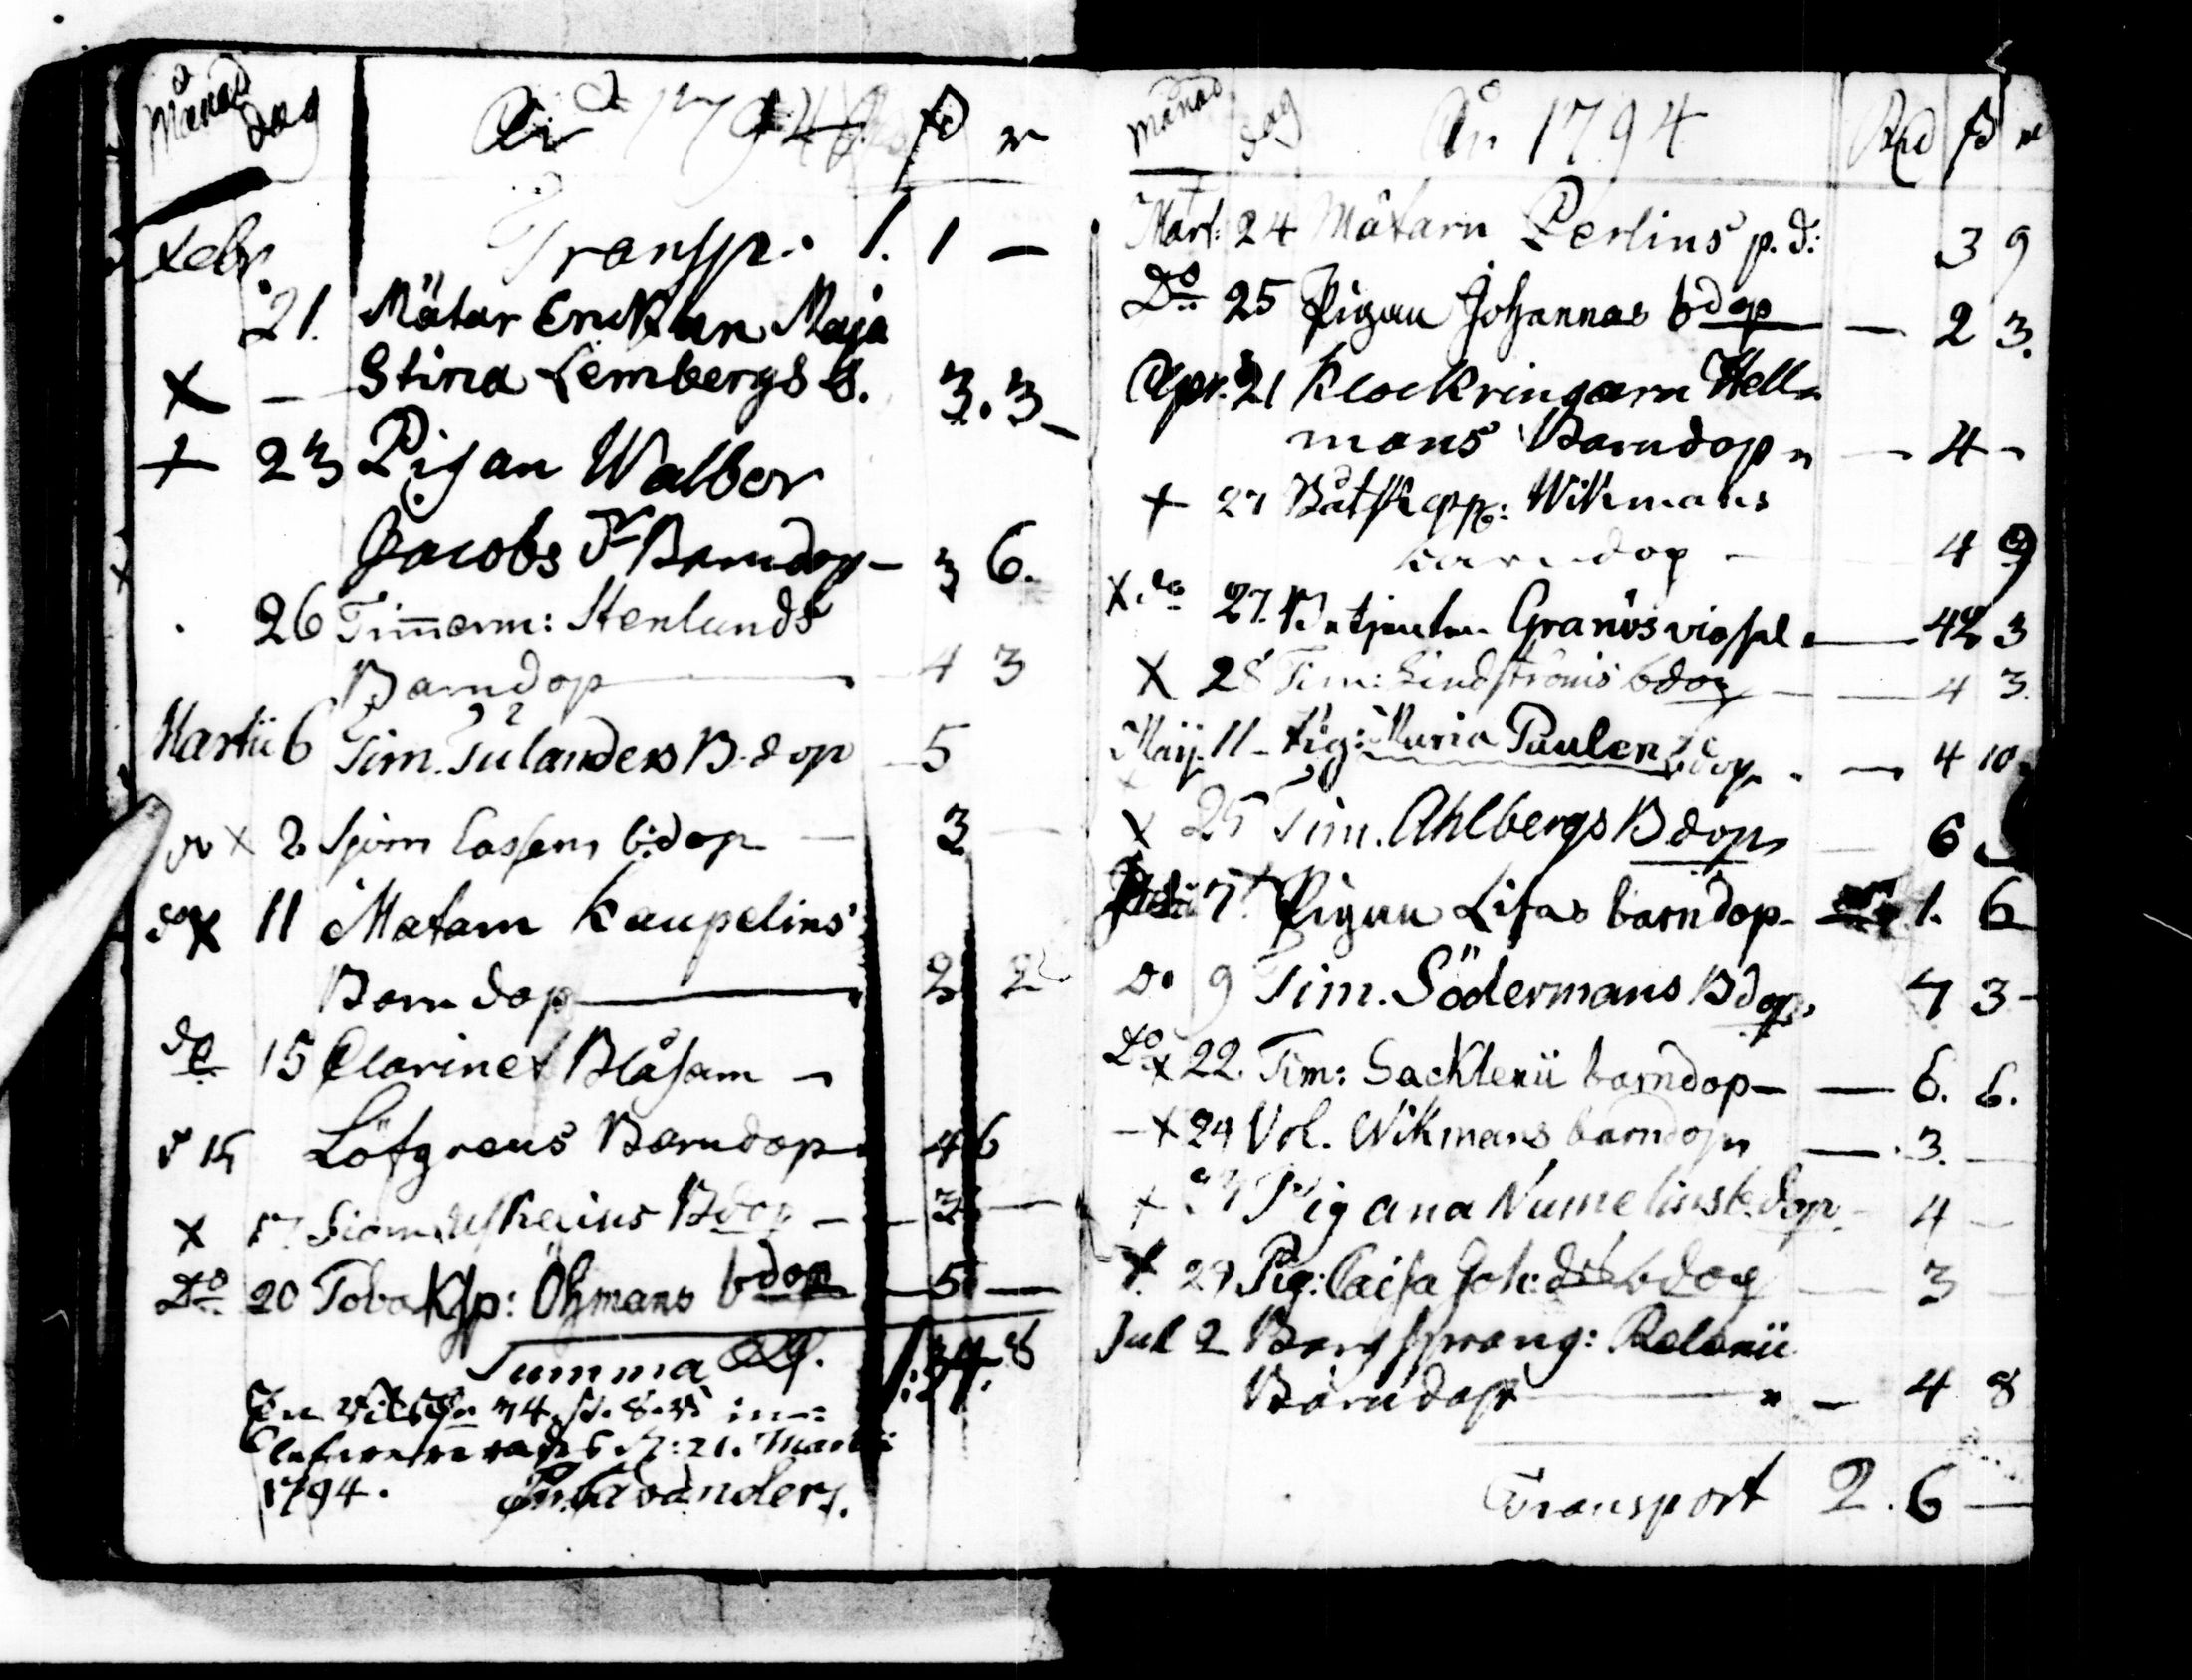 Månad dag År 1794 ß r
Febr. Transp. 1. 1 —
21. Mätar Enckan Maja
x — Stina Lembergs b. 3. 3
+ 23 Pigan Walbor
Jacobs dr Barndop — 3 6.
26 Timmerm: Stenlunds
Barndop — 4 3
Martii 6 Tim. Julanders B. dop 5
do x 2. Sjöm b:dop — 3 —
do x 11 Mätarn Kaupelins
Barndop — 2 2
do 15 Clarinet Blåsarn —
15 Löfgrens Barndop 4 6
x 17 Bdop — 3 —
Do 20 Tobaksp: Öhmans bdop — 5 —
Summa 1:34. 8
34. ß. 8. in-
d: 21. Martii
1794.
Månad dag År 1794 Rd ß r
Mart: 24 Mätarn Perlins p. d: 3 9
Do 25 Pigan Johannas bdop — 2 3.
Apr. 21 Klockringarn Hell-
mans Barndop — 4 -
+ 27 Båtsk Wikmans
barndop — 4 9
x do 27. Granös — 42 3
x 28 Tim: Lindströms bdop — 4 3.
Maij. 11 — Pig: Maria Paulen bdop. — 4 10
x 25 Tim. Ahlbergs Bdop — 6
7 Pigan Lisas barndop — 1. 6
Do 9 Tim. Södermans Bdop. 7 3 -
Do x 22. Tim: Sacklenii barndop — 6. 6.
— x 24 Vol. Wikmans barndop — 3. —
+ Pigana Numelins b.dop. 4 —
x. 29 Pig: Caisa Joh: dr bdop — 3 —
Jul 2 Borgsprang: Relanii
Barndop — 4 8
Transport 2. 6 —